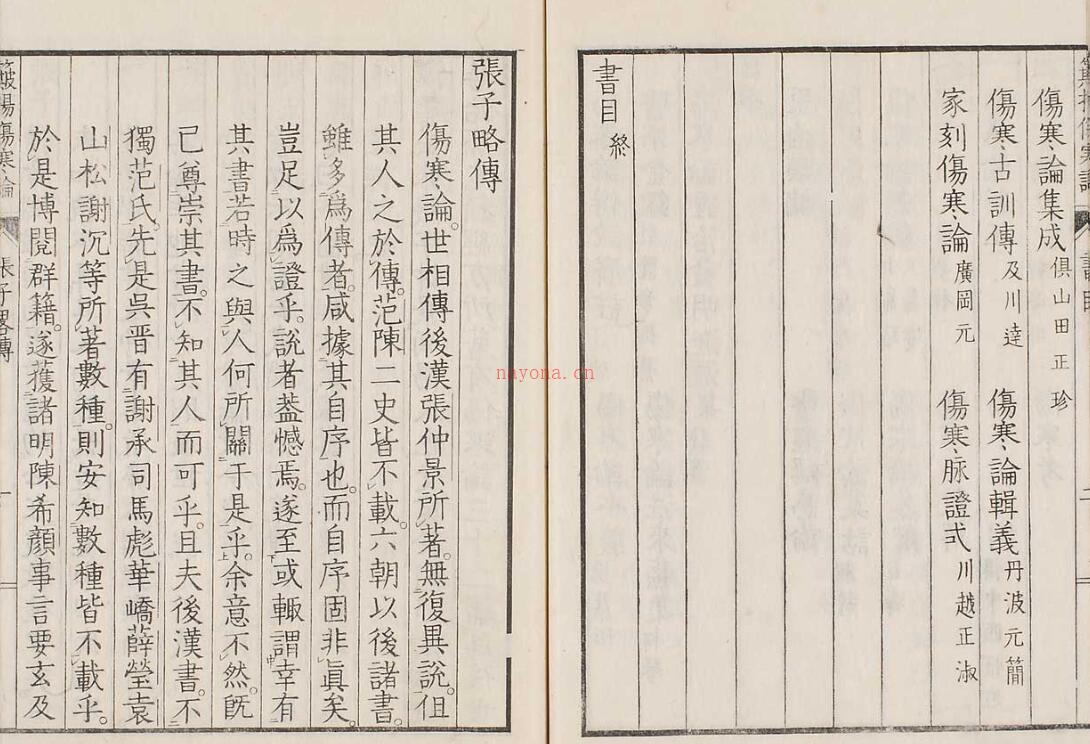 傷寒論集成 俱山田正珍
傷寒古訓傳 及川達 傷寒論輯義 丹波元簡
家刻傷寒論 廣岡元 傷寒脉證式 川越正淑
書目 終
張子略傳
傷寒論。世相傳後漢張仲景所著。無復異說。但
其人之於傳。范陳二史皆不載。六朝以後諸書。
雖多爲傳者。咸據其自序也。而自序固非眞矣。
豈足以爲證乎。說者葢憾焉。遂至或輙謂幸有
其書若時之與人何所關于是乎。余意不然。旣
已尊崇其書。不知其人而可乎。且夫後漢書。不
獨范氏。先是吳晋有謝承司馬彪華嶠薛瑩袁
山松謝沉等所著數種。則安知數種皆不載乎。
於是博閱群籍。遂獲諸明陳希顔事言要玄及
張子畧傳
nayona.cn